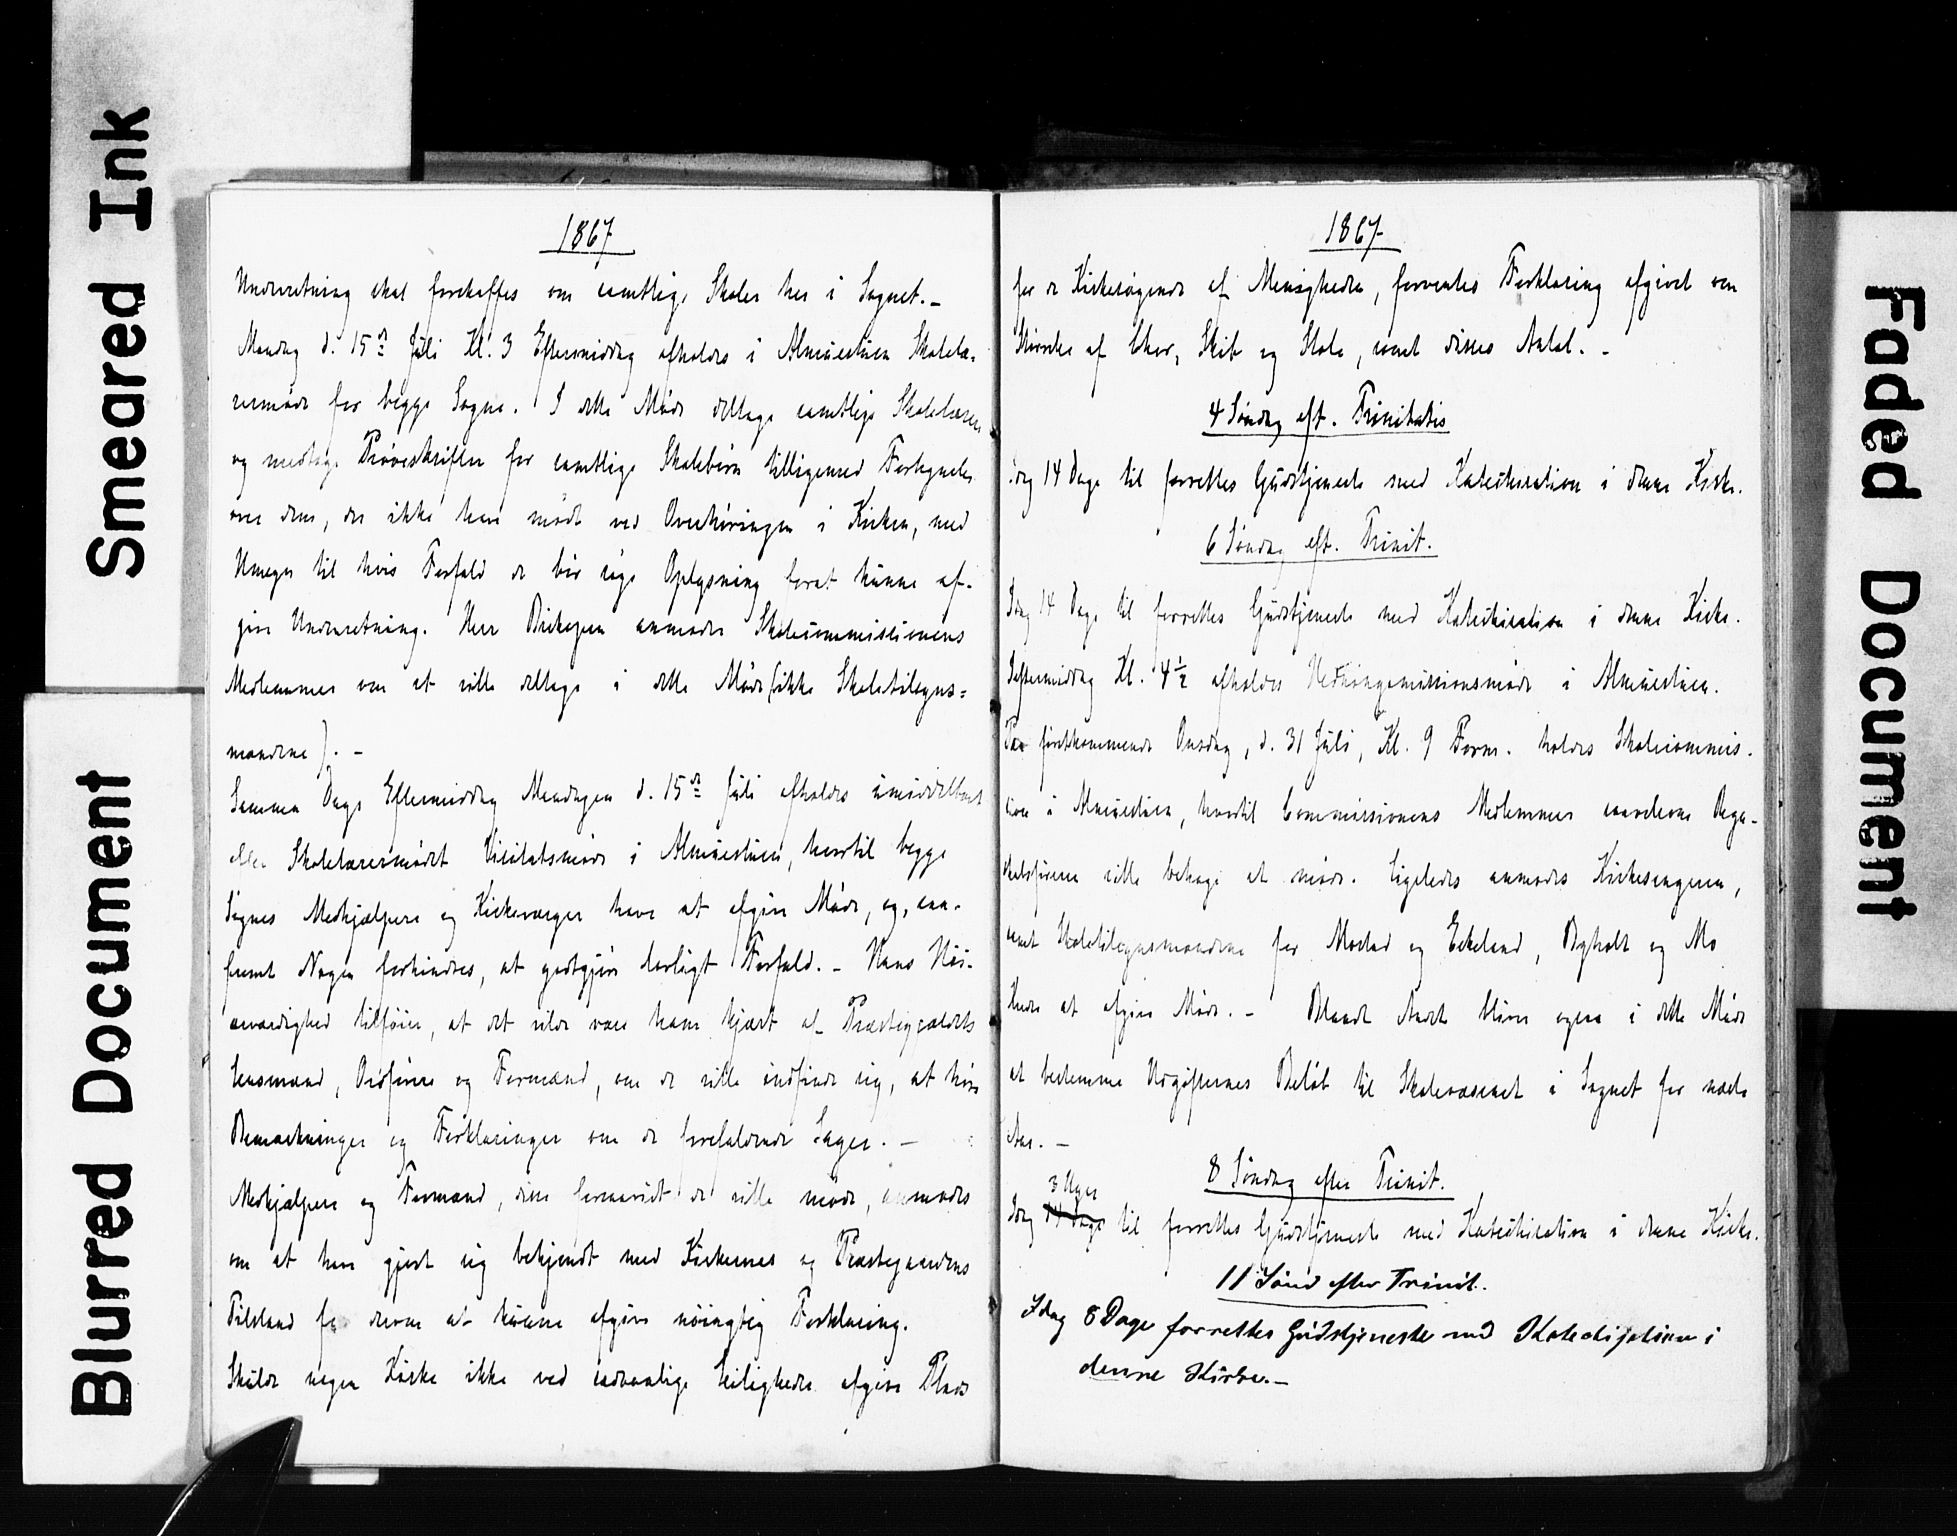 Smeared Ink
Blurred Document
Faded Document
1867
Underretning skal forskaffes om samtlige Skoler her i Sognet. –
Mandag d. 15de Juli Kl. 3 Eftermiddag afholdes i Almuestuen Skolelæ-
rermøde for begge Sogne. I dette Møde deltage samtlige Skolelærere
og medtage Prøveskrifter for samtlige Skolebørn tilligemed Fortegnelse
over dem, der ikke have mødt ved Overhøringen i Kirken, med
Umeger til hvis Forfald de bør søge Oplysning forat kunne af-
give Underretning. Herr Biskopen anmoder Skolecommissionens
Medlemmer om at ville deltage i dette Møde (ikke Skoletilsyns-
mændene). –
Samme Dags Eftermiddag Mandagen d. 15de Juli afholdes umiddelbart
efter Skolelærermødet Visitatsmøde i Almuestuen, hvortil begge
Sognes Medhjælpere og Kirkeværger have at afgive Møde, og, saa-
fremt Nogen forhindres, at godtgjøre lovligt Forfald. – Hans Høi-
ærværdighed tilføier, at det vilde være ham kjært af Præstegjældets
Lensmænd, Ordførere og Formænd, om de ville indfinde sig, at høre
Bemærkninger og Forklaringer om de forefaldende Sager. –
Medhjælpere og Formænd, disse forsaavidt de ville møde, anmodes
om at have gjort sig bekjendt med Kirkernes og Præstegaardens
Tilstand for derom at kunne afgive nøiagtig Forklaring.
Skulde nogen Kirke ikke ved sædvanlige Leiligheder afgive Plads
1867
for de Kirkesøgende af Menigheden, forventes Forklaring afgivet om
Størrelse af Chor, Skib og Stole, samt disses Antal. –
4 Søndag eft. Trinitatis
Idag 14 Dage til forrettes Gudstjeneste med Katechisation i denne Kirke.
6 Søndag eft. Trinit.
Idag 14 Dage til forrettes Gudstjeneste med Katechisation i denne Kirke.
I eftermiddag Kl. 4½ afholdes Hedningemissionsmøde i Almuestuen.
Paa førstkommende Onsdag, d. 31 Juli, Kl. 9 Form. holdes Skolecommis-
sion i Almuestuen, hvortil Commissionens Medlemmer saavelsom Regn-
skabsføreren ville behage at møde. Ligeledes anmodes Kirkesangeren,
samt Skoletilsynsmændene for Mostad og Eskeland, Byholt og Mo
Kreds at afgive Møde. – Blandt Andet bliver ogsaa i dette Møde
at bestemme Udgifternes Beløb til Skolevæsenet i Sognet for næste
Aar. –
8 Søndag efter Trinit.
3 Uger
Idag 14 Dage til forrettes Gudstjeneste med Katechisation i denne Kirke.
11 Sønd efter Trinit.
Idag 8 Dage forrettes Gudstjeneste med Katechisation i
denne Kirke. –